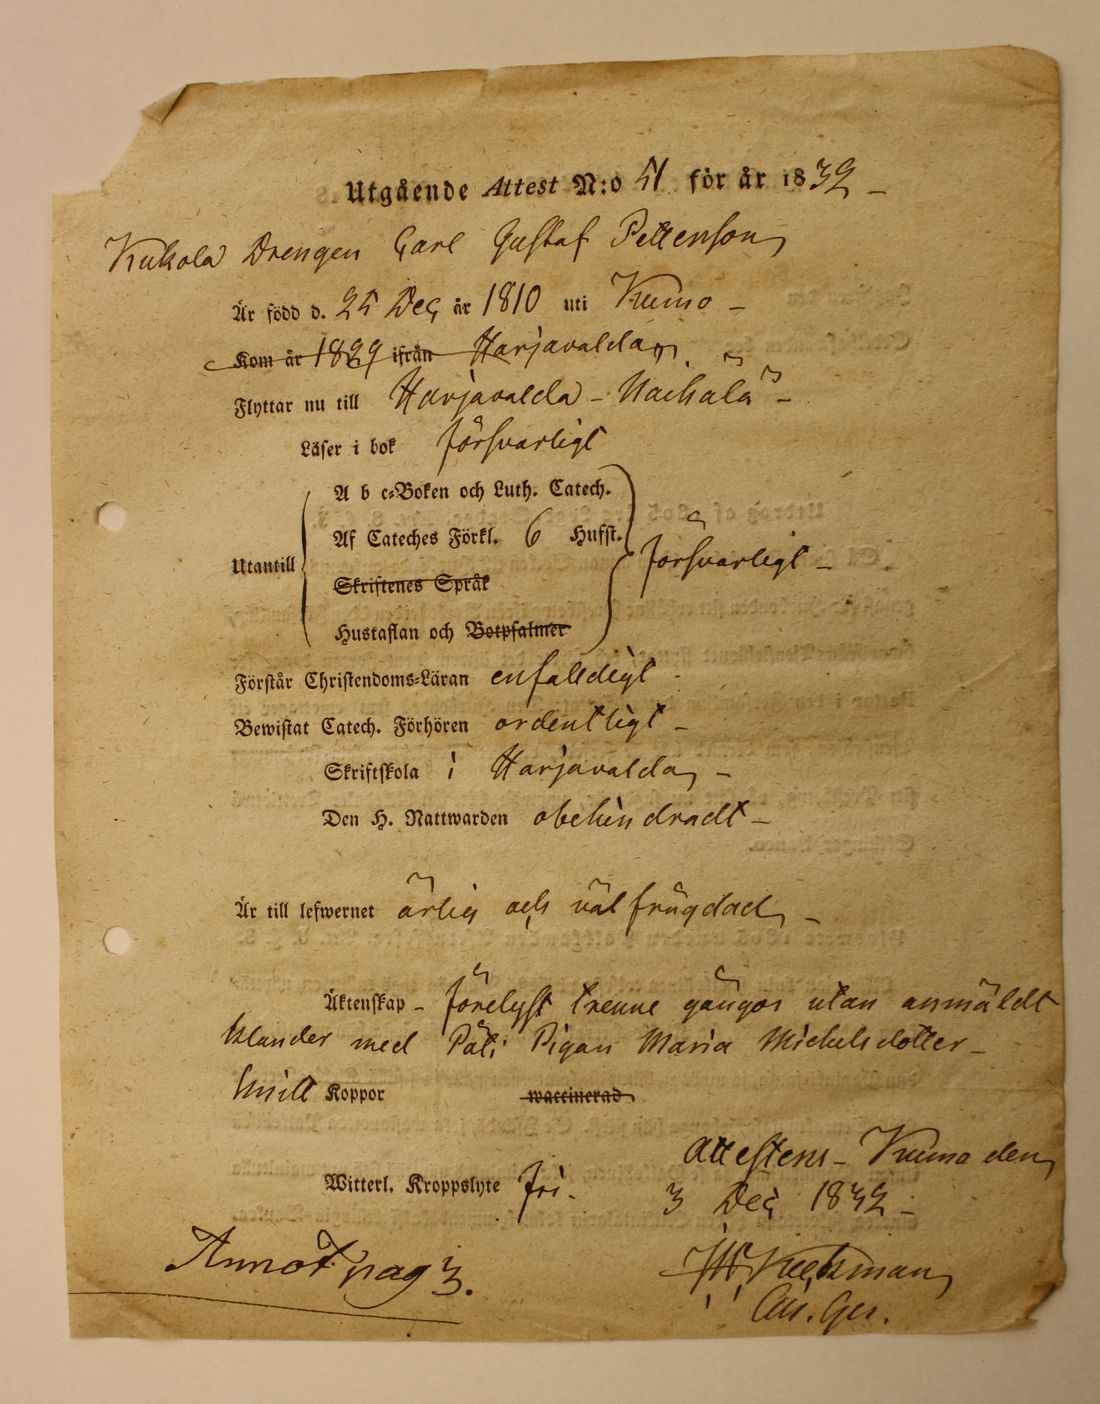 Utgående Attest N:o 51 för år 1832 –
Kukola Drengen Carl Gustaf Pettersson
Är född d. 25 Dec år 1810 uti Kumo –
Kom år 1829 ifrån Harjavalda
Flyttar nu till Harjavalda –
Läser i bok försvarligt
A b c-Boken och Luth. Catech.
Af Cateches Förkl. 6 Hufst.
Utantill försvarligt –
Skriftenes Språk
Hustaflan och Botpsalmer
Förstår Christendoms-Läran enfalldigt –
Bewistat Catech. Förhören ordentligt –
Skriftskola i Harjavalda –
Den H. Nattwarden obehindradt –
Är till lefwernet ärlig och väl frägdad –
Äktenskap – förelyst trenne gångor utan anmäldt
klander med Pigan Maria Michelsdotter –
haft Koppor waccinerad
Attesteras – Kumo den
Witterl. Kroppslyte fri.
3 Dec 1832 –
Annot. pag 3.